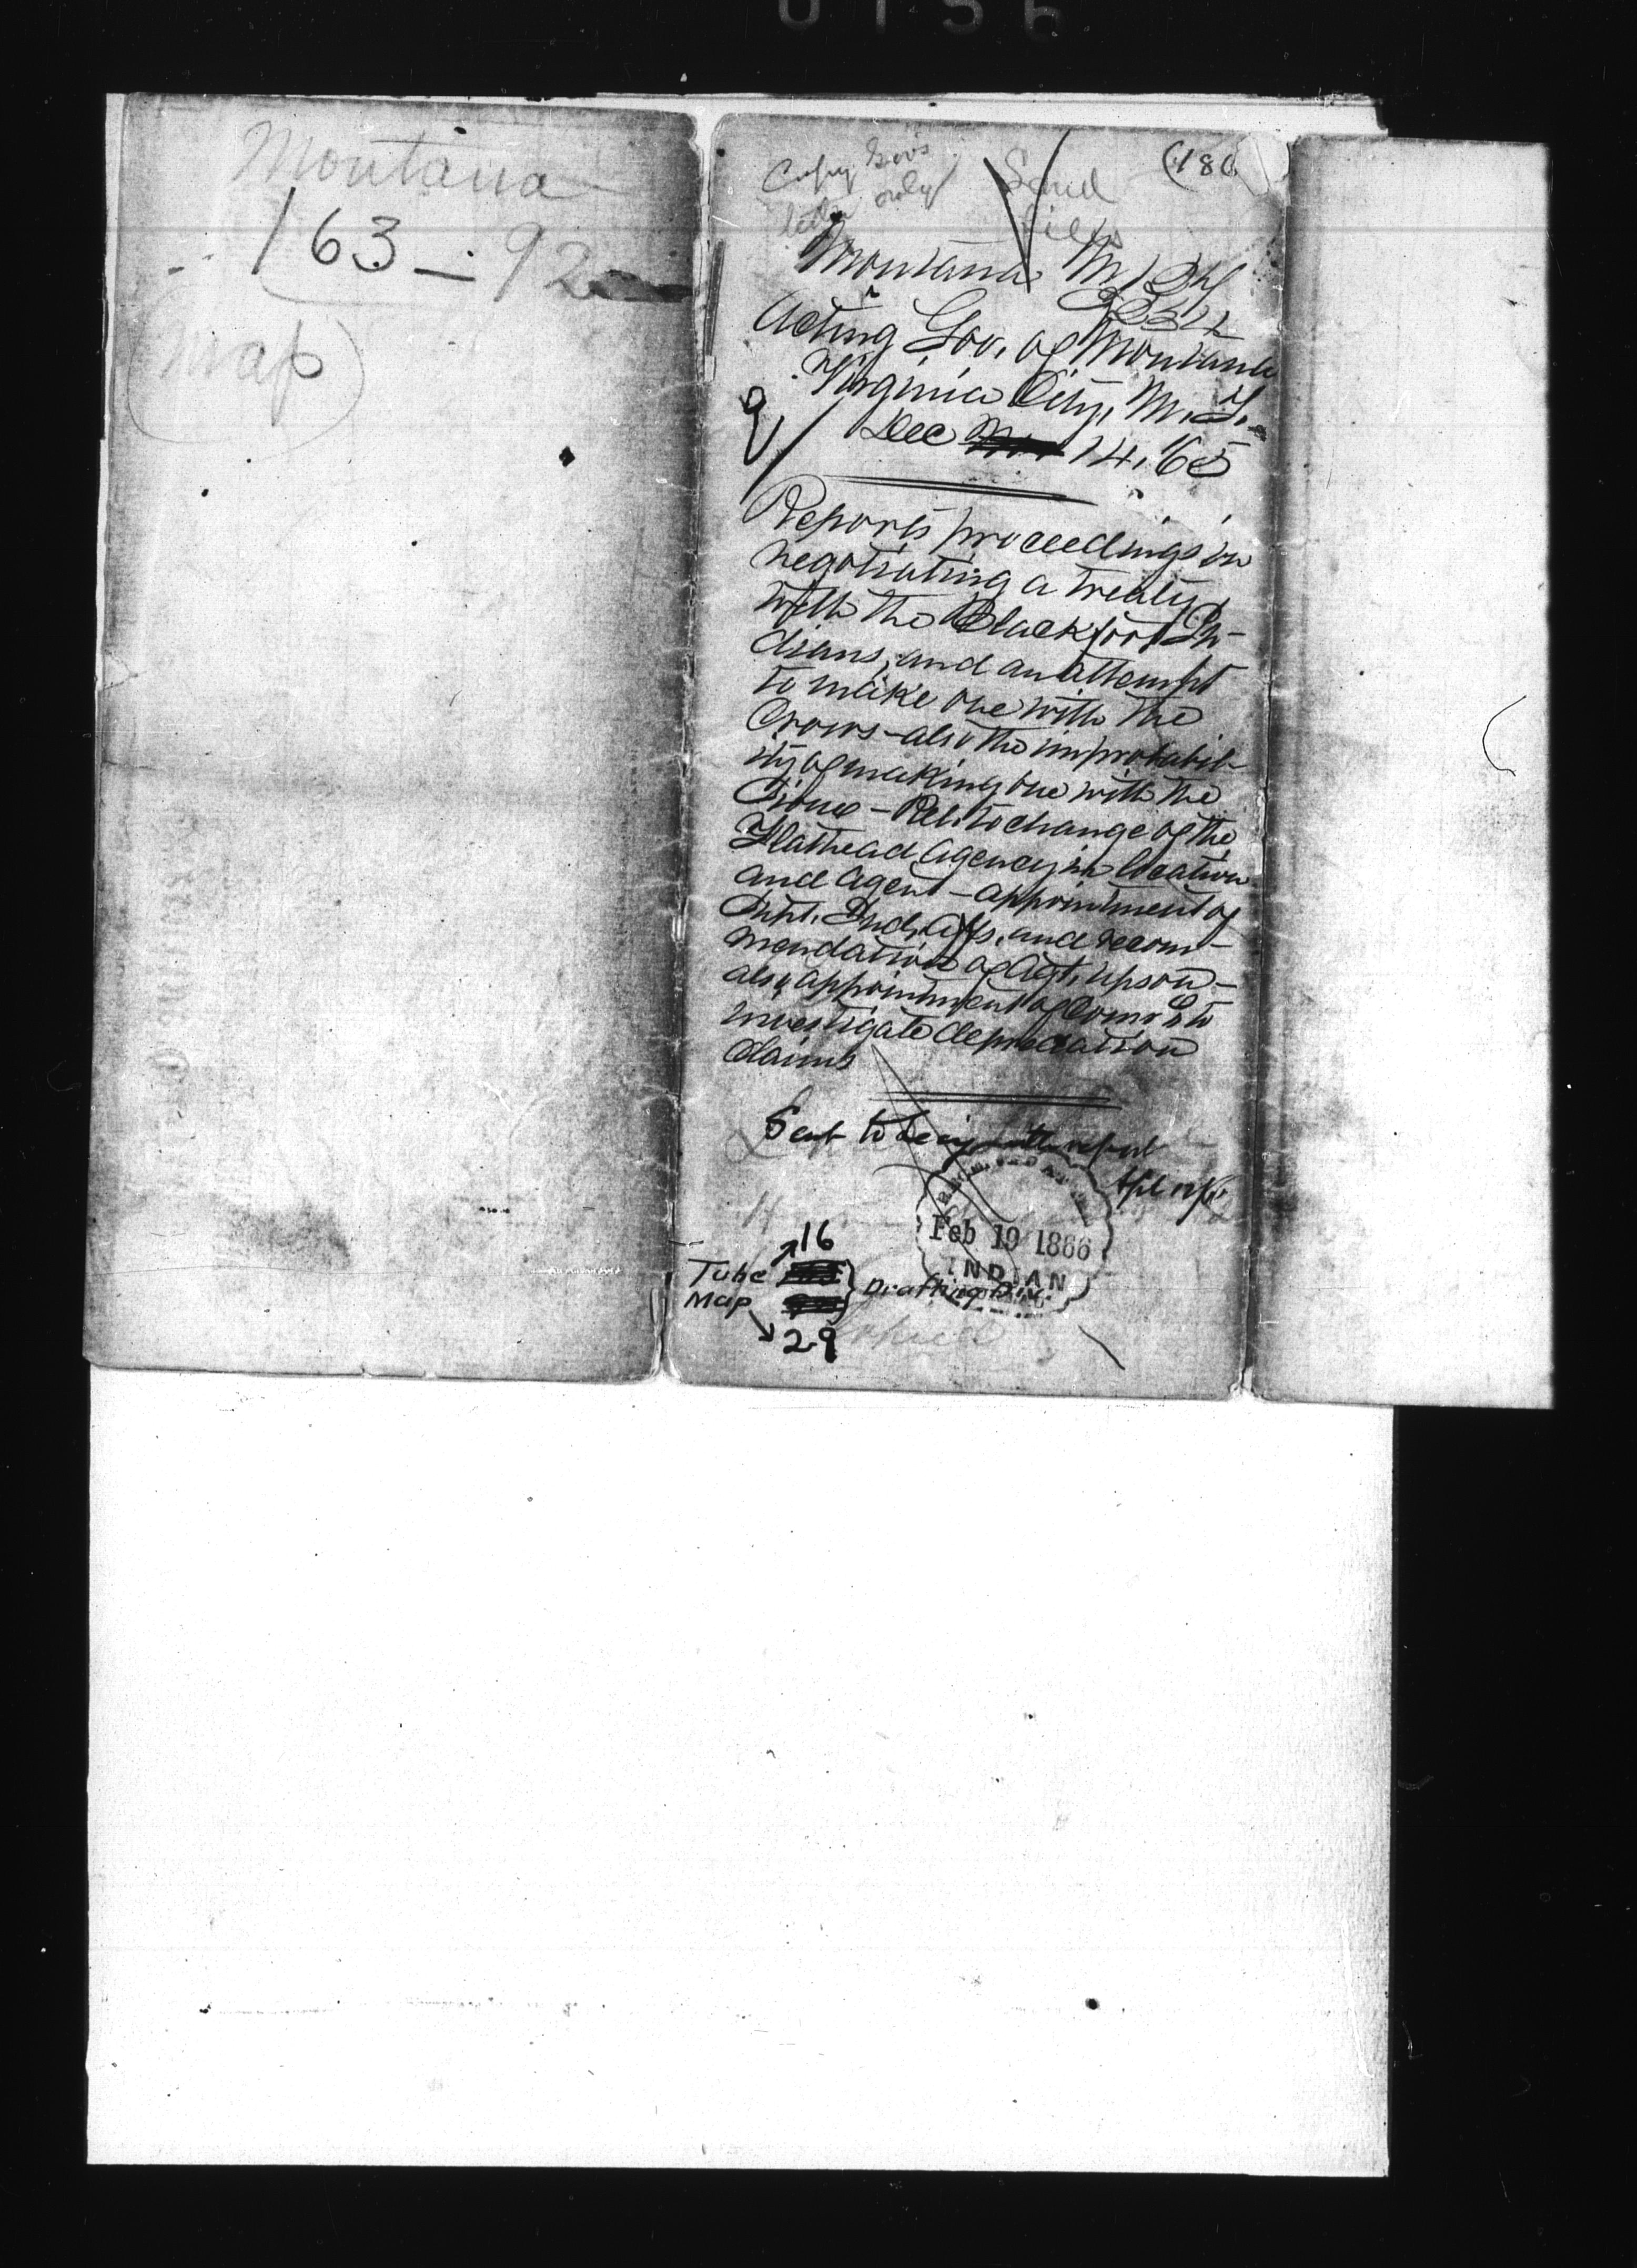 Montana
163 - 92
(Map)
Copy Gov's
letter only
Send
files
(186
Montana M
Acting Gov. of Montana
Virginia City, M. T.
Dec 14. '65
Reports proceedings in
negotiating a treaty
with the Blackfoot In-
dians, and an attempt
to make one with the
Crows - also the improbabil-
ity of making one with the
Sioux - Rel. to change of the
Flathead Agency in location
and Agent - appointment of
Supt. Ind. Affs. and recom-
mendation of Agt. Upson -
also appointment of Comrs to
investigate depredation
Claims
Sent to Secy with report
Apl
Feb 19 1866
INDIAN
16
Tube
Map
Drafting Div.
29